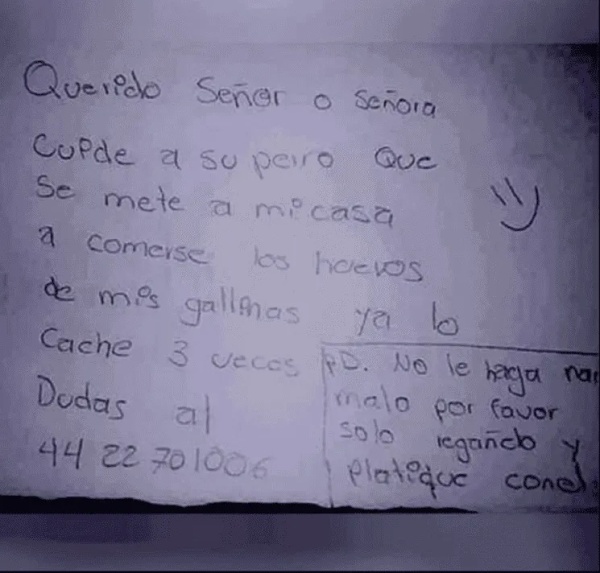 Querido Señor o Señora
cuide a su perro que
se mete a mi casa
a comerse los huevos
de mis gallinas ya lo
cache 3 veces
Dudas al
44 22 701006
P.D. No le haga na
malo por favor
solo regañelo y
platique conel